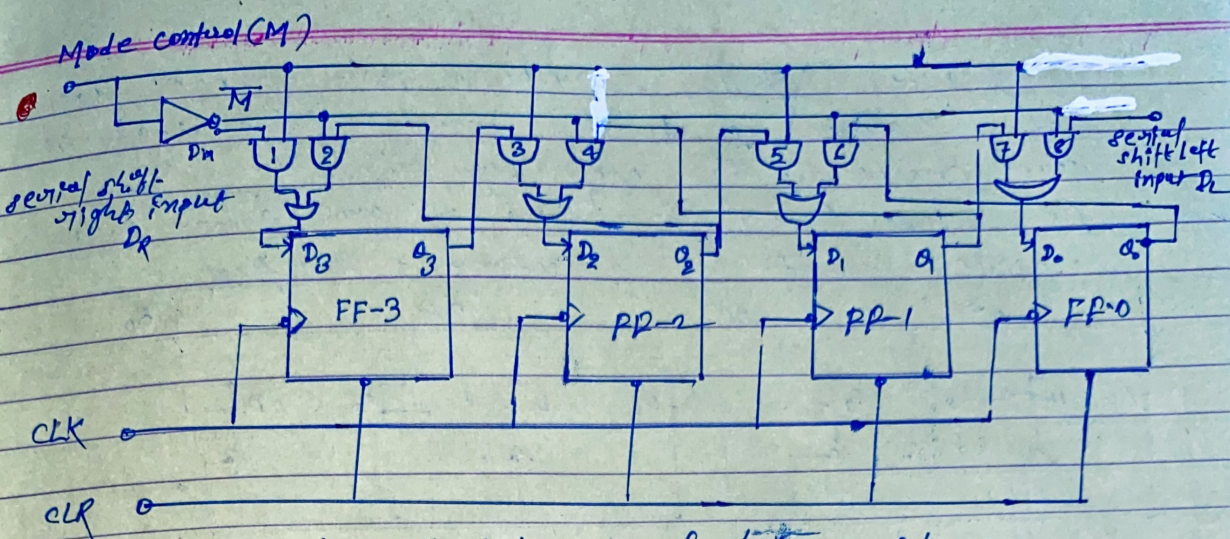 Mode control (M)
M
Dm
1
2
3
4
5
6
7
8
serial shift
right input
DR
serial
shift left
input DL
D3
Q3
FF-3
D2
Q2
D1
Q1
D0
Q0
FF-0
CLK
CLR